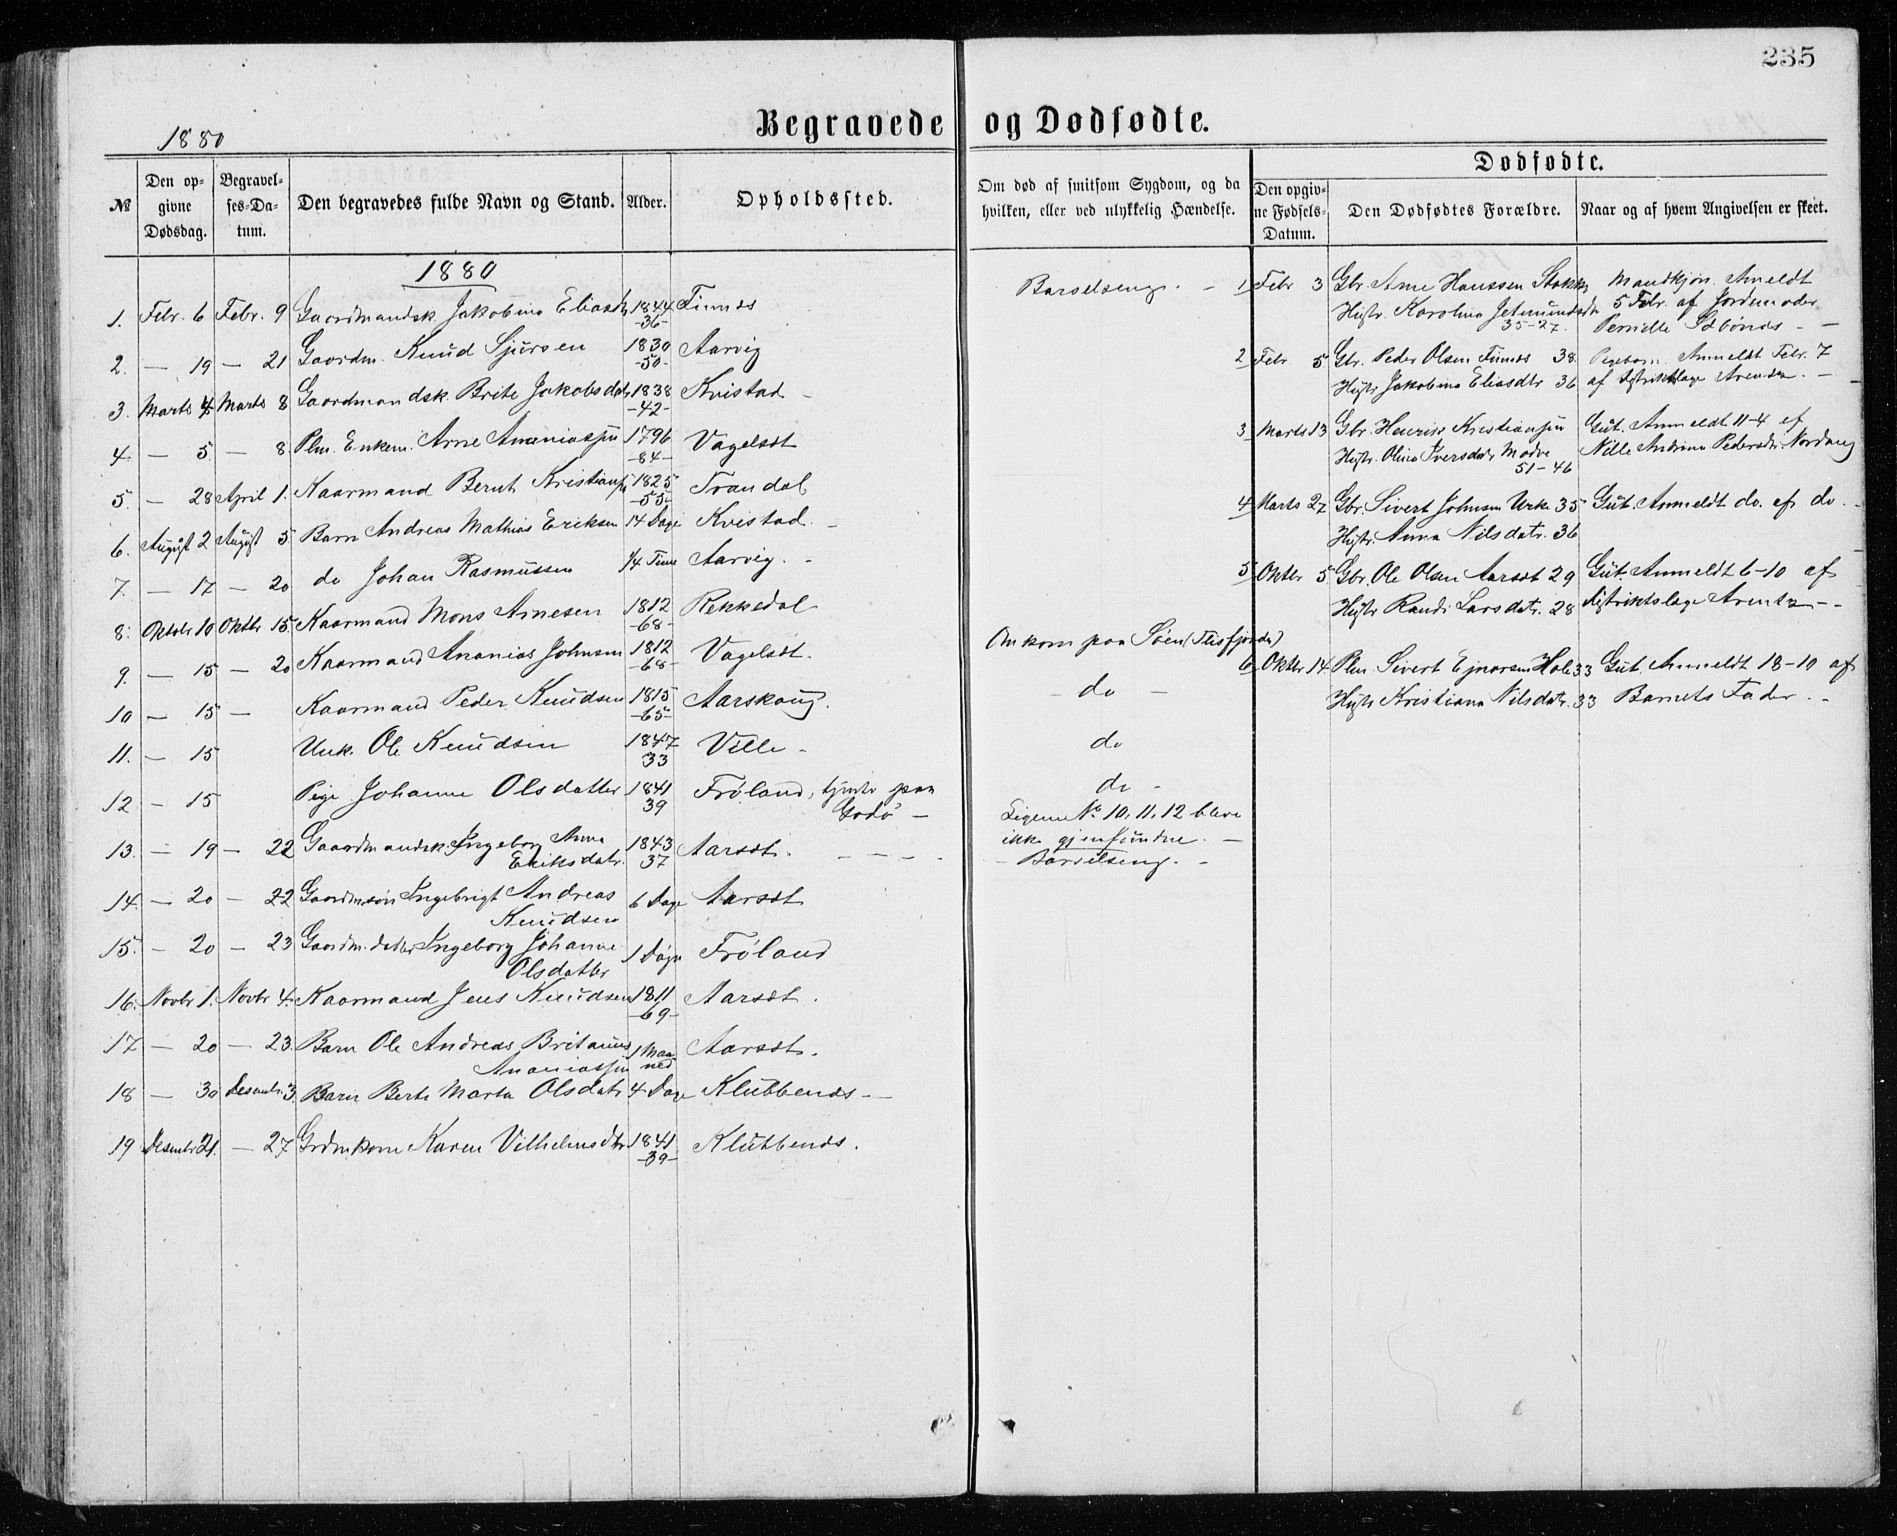 235
1880
Begravede og Dødfødte.
Dødfødte.
№
Den opgivne Dødsdag.
Begravelses-Datum.
Den begravedes fulde Navn og Stand.
Alder.
Opholdssted.
Om død af smitsom Sygdom, og da hvilken, eller ved ulykkelig Hændelse.
Den opgivne Fødsels-Datum.
Den Dødfødtes Forældre.
Naar og af hvem Angivelsen er skeet.
1880
1. Febr. 6 Febr. 9 Gaardmandsk. Jakobine Eliasdtr 1844 -36- Finnes Barselseng. -
2. — 19 — 21 Gaardm. Knud Sjursen 1830 -50- Aarvig
3. Marts 4 Marts 8 Gaardmandsk. Brite Jakobsdatr 1838 -42- Kvistad -
4 — 5 — 8 Plm. Enkem. Arne Ananiassøn 1796 -84- Vagelsæt
5. — 28 April 1. Kaarmand Bernt Kristians 1825 -55- Trandal
6. August 2 August 5 Barn Andreas Mathias Eriksen 14 Dage Kvistad. -
7. — 17 — 20 do Johan Rasmussen 14 Time Aarvig. -
8. Oktobr 10 Oktbr 15. Kaarmand Mons Arnesen 1812 -68- Rekkedal
9. — 15 — 20 Kaarmand Ananias Johnsen 1812 -68- Vagelsæt. Omkom paa Søen
10 — 15 — Kaarmand Peder Knudsen 1815 -65- Aarskoug. - do -
11. — 15 Unk. Ole Knudsen 1847 33 Ville - do
12 — 15 Pige Johanne Olsdatter 1841 39 Frøland, tjente paa Godø - do -
Ligene No 10, 11, 12 bleve
ikke gjenfundne. -
13. — 19 — 22 Gaardmandsk. Ingeborg Anne Eriksdatr. 1843 37 Aarsæt. - - - - - Barselseng. -
14. — 20 — 22 Gaardmsøn Ingebrigt Andreas Knudsen 6 Dage Aarsæt
15. — 20 — 23 Gaardm. datter Ingeborg Johanne Olsdatter 1 Døgn Frøland
16. Novbr 1. Novbr 4. Kaarmand Jens Knudsen 1811 -69- Aarsæt.
17 — 20 — 23. Barn Ole Andreas Ananiassøn 1 Maaned Aarsæt.
18 — 30 Desembr. 3. Barn Berte Marta Olsdatr 4 Dage Klubbenes - -
19 Desembr 21. — 27 Grdmkone Karen Vilhelmsdtr 1841 -39- Klubbenes.
1 Febr 3 Gbr. Arne Hanssen Stokke Mandkjøn. Anmeldt
Hustr. Karoline Jetmundsdtr 5 Febr. af Jordemoder
35-27. Pernille -
2 Febr 5 Gbr. Peder Olsen Finnes 38. Pigebarn. Anmeldt Febr. 7
Hustr Jakobine Eliasdtr 36 af distriktslæge Arentz. -
3 Marts 13 Gbr. Henrik Kristiansen Gut. Anmeldt 11-4 af
Hustr. Oline Iversdatr Modve Nille Andrine Pedersdtr. Nordang
51-46
4 Marts 27 Gbr. Sivert Johnsen Urke 35 Gut. Anmeldt do. af do. -
Hustr. Anna Nilsdatr. 36
5 Oktbr 5 Gbr. Ole Olsen Aarsæt 29 Gut. Anmeldt 6-10 af
Hustr Randi Larsdatr. 28 distriktslæge Arentz - -
6 Oktbr 14. Plm. Sivert Ejnarsen Hole 33 Gut. Anmeldt 18-10 af
Hustr Kristiane Nilsdatr. 33 Barnets Fader. -